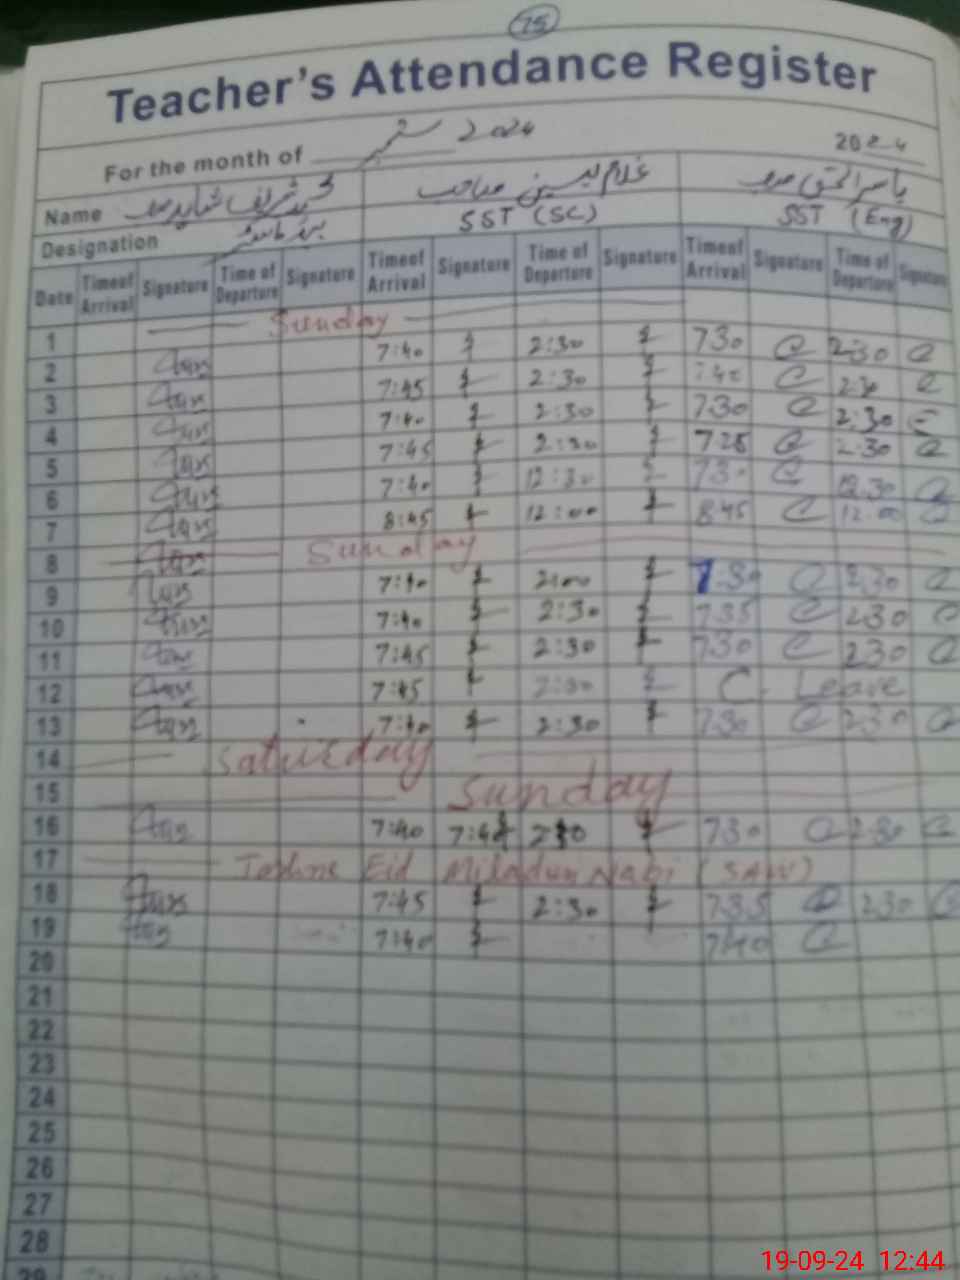 75
Teacher's Attendance Register
For the month of ستمبر 2024 2024
Name محمد شریف شاہد صاحب غلام یسین صاحب یاسر الحق صاحب
Designation ہیڈ ماسٹر SST (SC) SST (Eng)
Date Timeof Arrival Signature Time of Departure Signature Timeof Arrival Signature Time of Departure Signature Timeof Arrival Signature Time of Departure Signature
1 Sunday
2 7:40 2:30 730 2:30
3 7:45 2:30 7:40 2:30
4 7:40 2:30 730 2:30
5 7:45 2:30 725 2:30
6 7:40 12:30 730 12.30
7 8:45 12:00 845 12:00
8 Sunday
9 7:40 2:00 7:30 2:30
10 7:40 2:30 735 230
11 7:45 2:30 730 230
12 7:45 2:30 C. Leave
13 7:40 2:30 730 230
14 Saturday
15 Sunday
16 7:40 7:4 2:30 730 2:30
17 Eid Miladun Nabi (SAW)
18 7:45 2:30 735 230
19 7:40 7:40
20
21
22
23
24
25
26
27
28
29
19-09-24 12:44